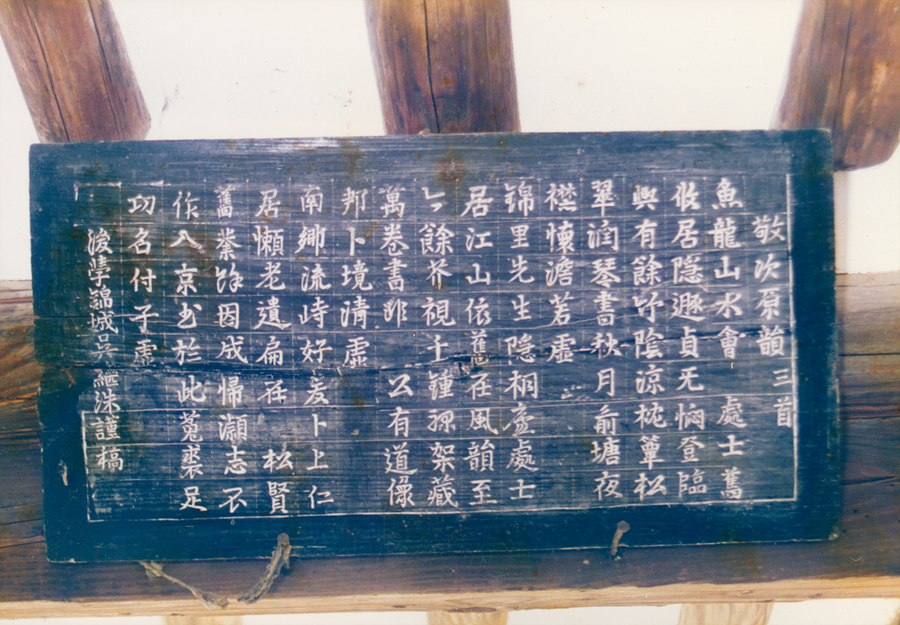 敬次原韻三首
魚龍山水會處士舊
攸居隱遯貞无悶登臨
興有餘竹陰涼枕簟松
翠潤琴書秋月前塘夜
襟懷澹若虛
錦里先生隱桐庐處士
居江山依舊在風韻至
今餘芥視千鍾祿架藏
萬卷書昨公有道像
邦卜境淸虛
南鄉流峙好爰卜上仁
居懶老遺扁在松賢
舊因成歸瀨志不
作入京书於此菟裘足
功名付子虛
後學錦城吳繼洙謹稿